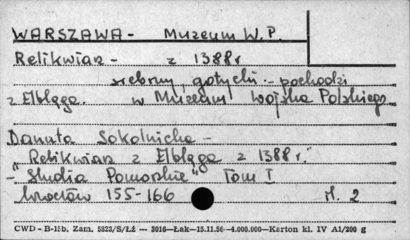 WARSZAWA - Muzeum W.P.
Relikwiarz - z 1388 r
srebrny, gotycki - pochodzi
z Elbląga. w Muzeum Wojska Polskiego
Danuta Sokolnicka -
"Relikwiarz z Elbląga z 1388 r."
- "Studia Pomorskie" Tom I
Wrocław 155-166 il. 2
CWD - B-15b. Zam. 5823/S/ŁŻ — 3016—Łak—15.11.56—4.000.000—Karton kl. IV A1/200 g